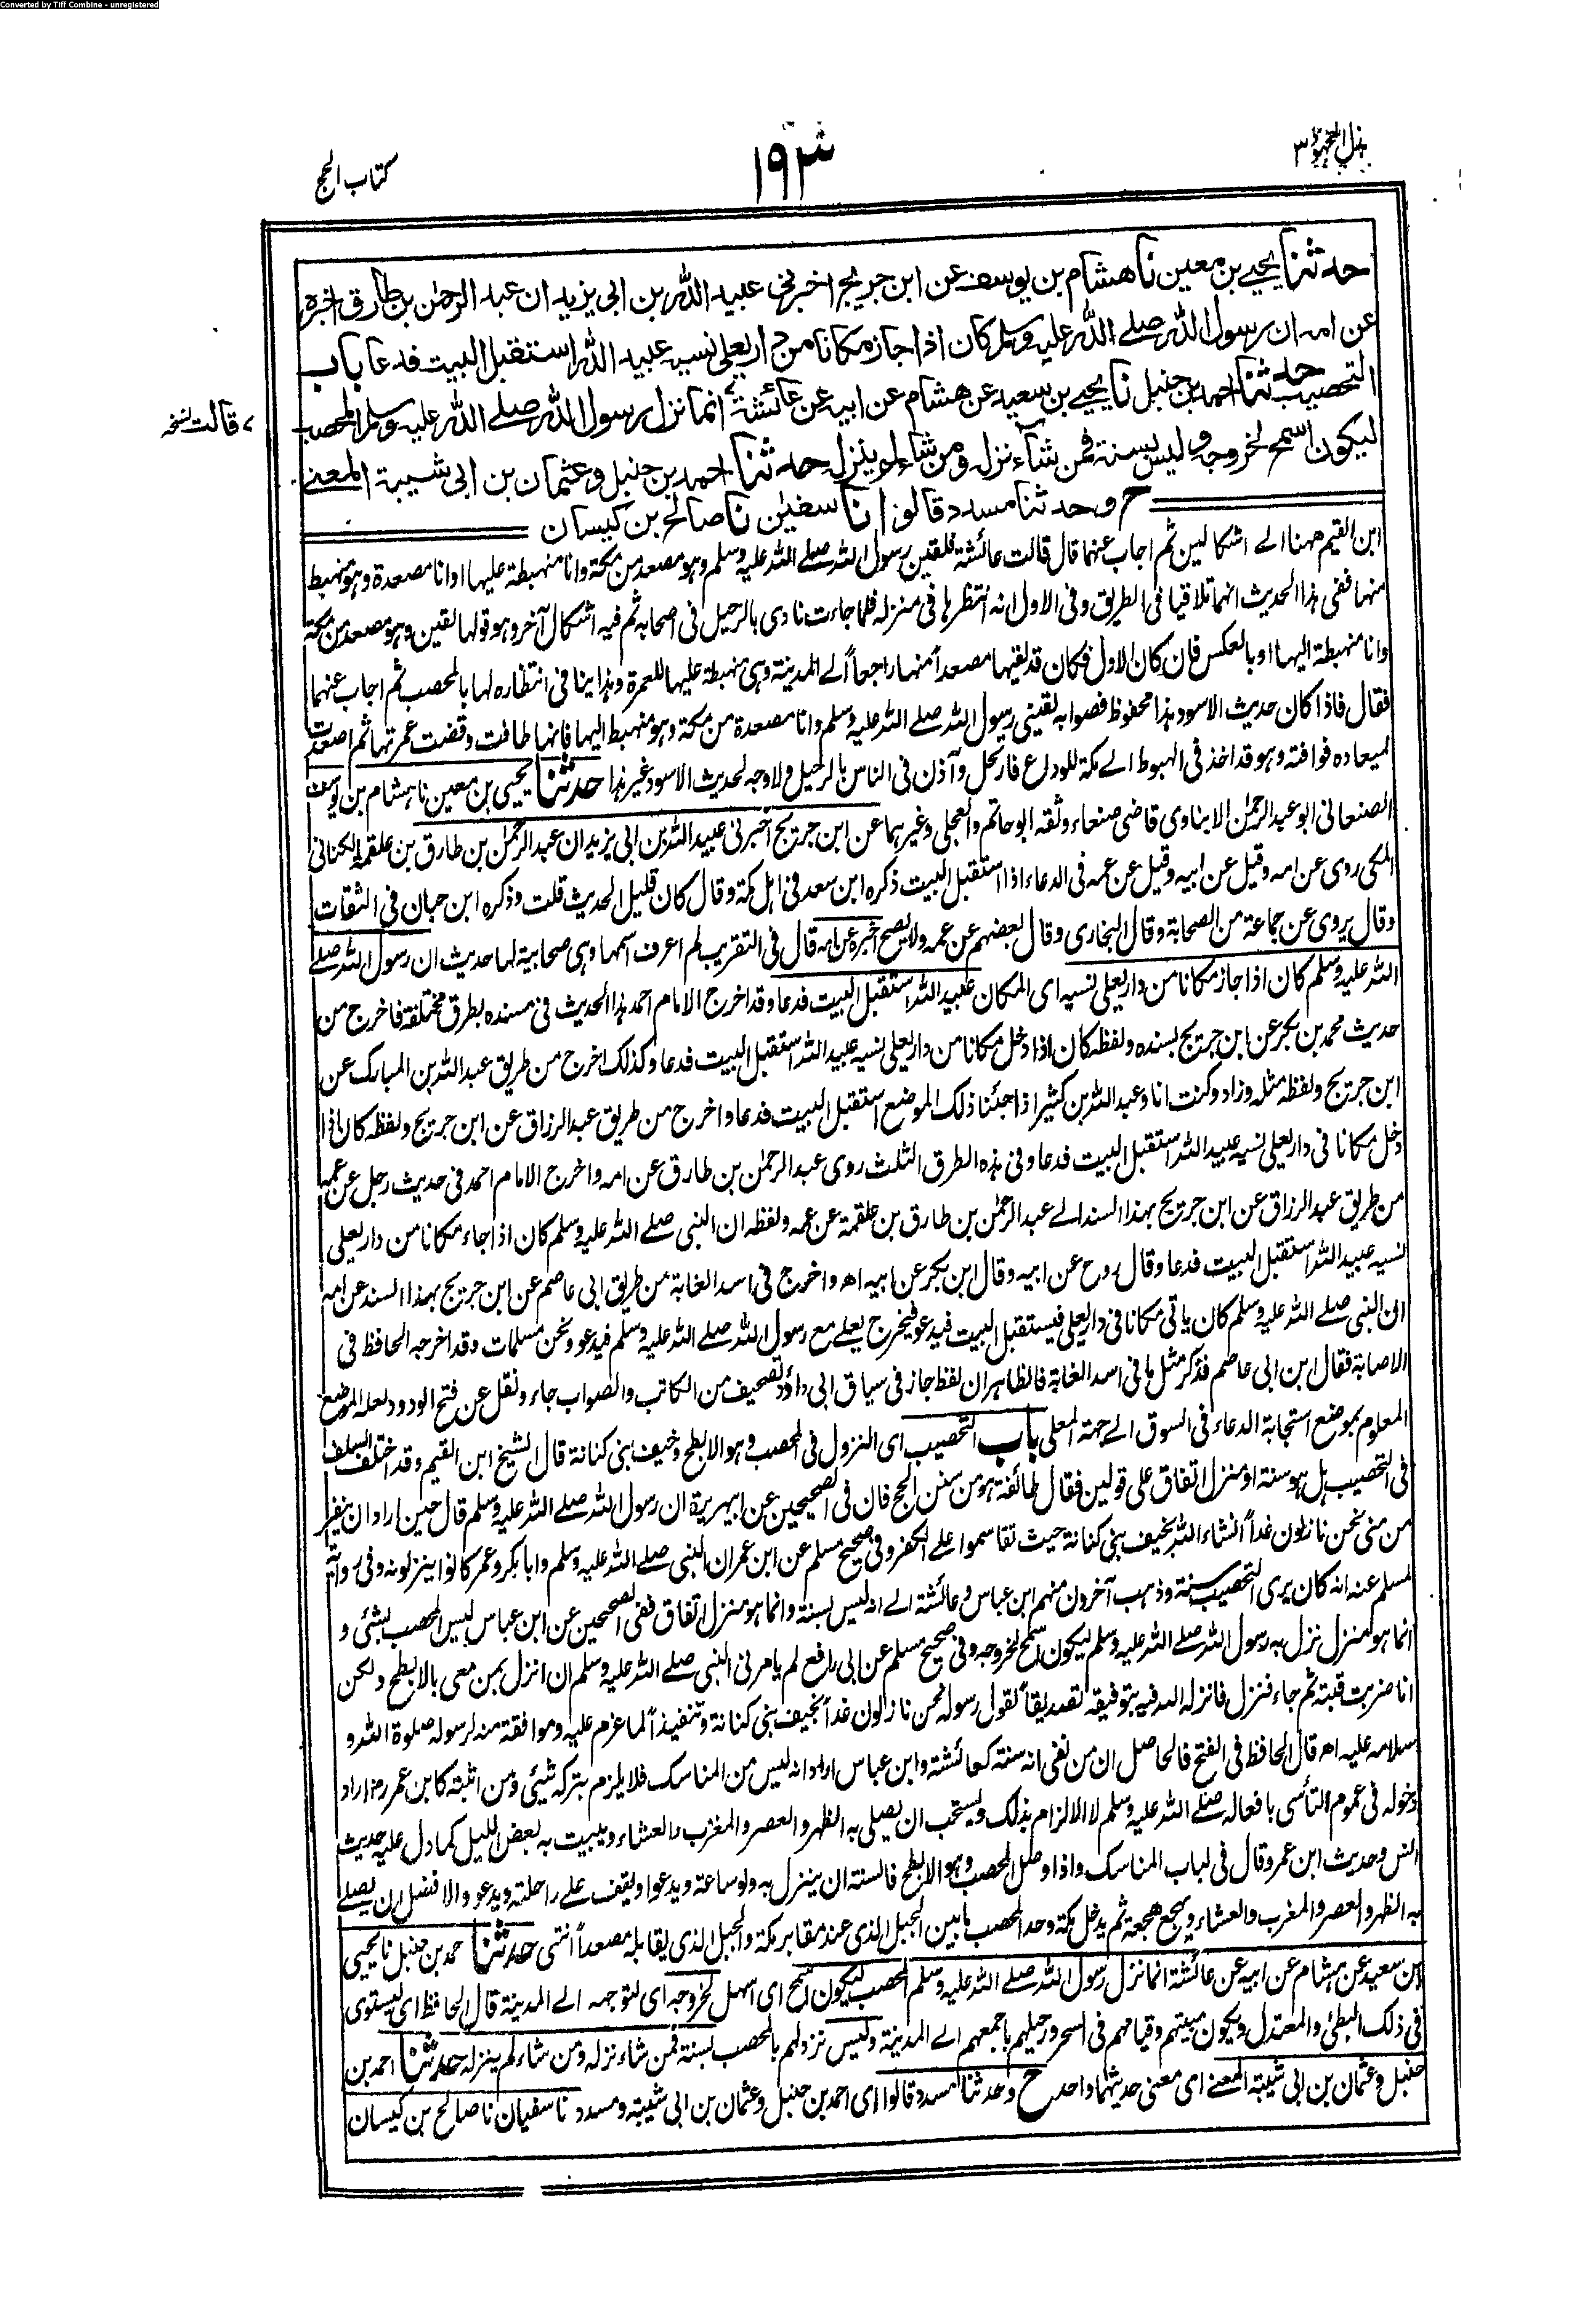 Converted by Tiff Combine - unregistered
بذل المجهود ٣
١٩٣
كتاب الحج
حدثنا يحيى بن معين نا هشام بن يوسف عن ابن جريج اخبرني عبيد الله بن ابي يزيد ان عبد الرحمن بن طارق اخبره
عن امه ان رسول الله صلى الله عليه وسلم كان اذا جاز مكانا من دار يعلى نسيه عبيد الله استقبل البيت فدعا باب
التحصيب حدثنا احمد بن حنبل نا يحيى بن سعيد عن هشام عن ابيه عن عائشة انما نزل رسول الله صلى الله عليه وسلم المحصب
قالت نسخه
ليكون اسمح لخروجه وليس بسنة فمن شاء نزله ومن شاء لم ينزله حدثنا احمد بن حنبل وعثمان بن ابي شيبة المعنى
ح وحدثنا مسدد قالوا نا سفين نا صالح بن كيسان
ابن القيم ههنا الى اشكالين ثم اجاب عنهما قال قالت عائشة فلقيني رسول الله صلى الله عليه وسلم وهو مصعد من مكة وانا منهبطة عليها او انا مصعدة وهو منهبط
منها ففي هذا الحديث انهما تلاقيا في الطريق وفي الاول انه انتظرها في منزله فلما جاءت نادى بالرحيل في اصحابه ثم فيه اشكال آخر وهو قولها لقيني وهو مصعد من مكة
وانا منهبطة اليها او بالعكس فان كان الاول فكان قد لقيها مصعداً منها راجعاً الى المدينة وهي منهبطة عليها للعمرة وهذا ينافي انتظاره لها بالمحصب ثم اجاب عنهما
فقال فاذا كان حديث الاسود هذا محفوظ فصوابه لقيني رسول الله صلى الله عليه وسلم وانا مصعدة من مكة وهو منهبط اليها فانها طافت وقضت عمرتها ثم اصعدت
لميعاده فوافته وهو قد اخذ في الهبوط الى مكة للوداع فارتحل وآذن في الناس بالرحيل ولا وجه لحديث الاسود غير هذا حدثنا يحيى بن معين نا هشام بن يوسف
الصنعاني ابو عبد الرحمن الابناوي قاضي صنعاء وثقه ابو حاتم والعجلي وغيرهما عن ابن جريج اخبرني عبيد الله بن ابي يزيد ان عبد الرحمن بن طارق بن علقمة الكناني
المكي روى عن امه وقيل عن ابيه وقيل عن عمه في الدعاء اذا استقبل البيت ذكره ابن سعد في اهل مكة وقال كان قليل الحديث قلت وذكره ابن حبان في الثقات
وقال يروي عن جماعة من الصحابة وقال البخاري وقال بعضهم عن عمه ولا يصح اخبره عن امه قال في التقريب لم اعرف اسمها وهي صحابية لها حديث ان رسول الله صلى
الله عليه وسلم كان اذا جاز مكانا من دار يعلى نسيه اى المكان عبيد الله استقبل البيت فدعا وقد اخرج الامام احمد هذا الحديث في مسنده بطرق مختلفة فاخرج من
حديث محمد بن بكر عن ابن جريج بسنده ولفظه كان اذا دخل مكانا من دار يعلى نسيه عبيد الله استقبل البيت فدعا وكذلك اخرج من طريق عبد الله بن المبارك عن
ابن جريج ولفظه مثله وزاد وكنت انا وعبد الله بن كثير اذا جئنا ذلك الموضع استقبل البيت فدعا واخرج من طريق عبد الرزاق عن ابن جريج ولفظه كان اذا
دخل مكانا في دار يعلى نسيه عبيد الله استقبل البيت فدعا وفي هذه الطرق الثلث روى عبد الرحمن بن طارق عن امه واخرج الامام احمد في حديث رجل عن عمه
من طريق عبد الرزاق عن ابن جريج بهذا السند الى عبد الرحمن بن طارق بن علقمة عن عمه ولفظه ان النبي صلى الله عليه وسلم كان اذا جاء مكانا من دار يعلى
نسيه عبيد الله استقبل البيت فدعا وقال روح عن ابيه وقال ابن بكر عن امه اه واخرج في اسد الغابة من طريق ابي عاصم عن ابن جريج بهذا السند عن امه
ان النبي صلى الله عليه وسلم كان ياتي مكانا في دار يعلى فيستقبل البيت فيدعو فيخرج يعلى مع رسول الله صلى الله عليه وسلم فيدعو ونحن مسلمات وقد اخرجه الحافظ في
الاصابة فقال ابن ابي عاصم فذكر مثل ما في اسد الغابة فالظاهر ان لفظ جاز في سياق ابي داؤد تصحيف من الكاتب والصواب جاء ونقل عن فتح الودود لعله الموضع
المعلوم بموضع استجابة الدعاء في السوق الى جهة المعلى باب التحصيب اى النزول في المحصب وهو الابطح وخيف بني كنانة قال الشيخ ابن القيم وقد اختلف السلف
في التحصيب هل هو سنة او منزل اتفاق على قولين فقال طائفة هو من سنن الحج فان في الصحيحين عن ابي هريرة ان رسول الله صلى الله عليه وسلم قال حين اراد ان ينفر
من منى نحن نازلون غداً انشاء الله بخيف بني كنانة حيث تقاسموا على الكفر وفي صحيح مسلم عن ابن عمر ان النبي صلى الله عليه وسلم وابا بكر وعمر كانوا ينزلونه وفي رواية
لمسلم عنه انه كان يرى التحصيب سنة وذهب آخرون منهم ابن عباس وعائشة الى انه ليس بسنة وانما هو منزل اتفاق ففي الصحيحين عن ابن عباس ليس المحصب بشئ و
انما هو منزل نزل به رسول الله صلى الله عليه وسلم ليكون اسمح لخروجه وفي صحيح مسلم عن ابي رافع لم يامرني النبي صلى الله عليه وسلم ان انزل بمن معي بالابطح ولكن
انا ضربت قبته ثم جاء فنزل فانزله الله فيه بتوفيقه تصديقاً لقول رسوله نحن نازلون غداً بخيف بني كنانة وتنفيذاً لما عزم عليه وموافقة منه لرسوله صلوة الله و
سلامه عليه اه قال الحافظ في الفتح فالحاصل ان من نفى انه سنة كعائشة وابن عباس اراد انه ليس من المناسك فلا يلزم بتركه شيئ ومن اثبته كابن عمر رض اراد
دخوله في عموم التأسي بافعاله صلى الله عليه وسلم لا الالزام بذلك ويستحب ان يصلي به الظهر والعصر والمغرب والعشاء ويبيت به بعض الليل كما دل عليه حديث
انس وحديث ابن عمر وقال في لباب المناسك واذا وصل المحصب وهو الابطح فالسنة ان ينزل به ولو ساعة ويدعو او يقف على راحلته ويدعو والافضل ان يصلي
به الظهر والعصر والمغرب والعشاء ويهجع هجعة ثم يدخل مكة وحد المحصب ما بين الجبل الذي عند مقابر مكة والجبل الذي يقابله مصعداً انتهى حدثنا احمد بن حنبل نا يحيى
بن سعيد عن هشام عن ابيه عن عائشة انما نزل رسول الله صلى الله عليه وسلم المحصب ليكون اسمح اى اسهل لخروجه اى لتوجهه الى المدينة قال الحافظ اى ليستوي
في ذلك البطئ والمعتدل ويكون مبيتهم وقيامهم في السحر ورحيلهم باجمعهم الى المدينة وليس نزولهم بالمحصب بسنة فمن شاء نزله ومن شاء لم ينزله حدثنا احمد بن
حنبل وعثمان بن ابي شيبة المعنى اى معنى حديثهما واحد ح وحدثنا مسدد قالوا اى احمد بن حنبل وعثمان بن ابي شيبة ومسدد نا سفيان نا صالح بن كيسان